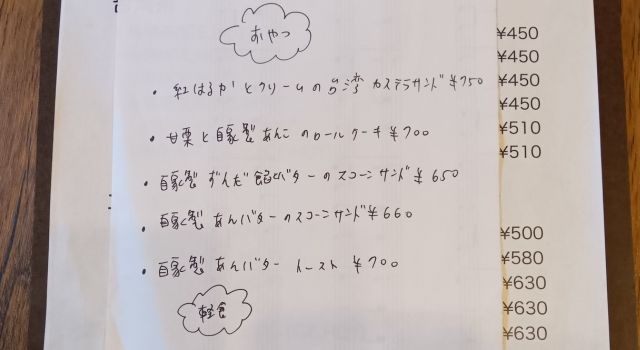 おやつ
・紅はるかとクリームの台湾カステラサンド ¥750
・甘栗と自家製あんこのロールケーキ ¥700
・自家製ずんだ餡とバターのスコーンサンド ¥650
・自家製あんバターのスコーンサンド ¥660
・自家製あんバタートースト ¥700
軽食
¥450
¥450
¥450
¥450
¥510
¥510
¥500
¥580
¥630
¥630
¥630